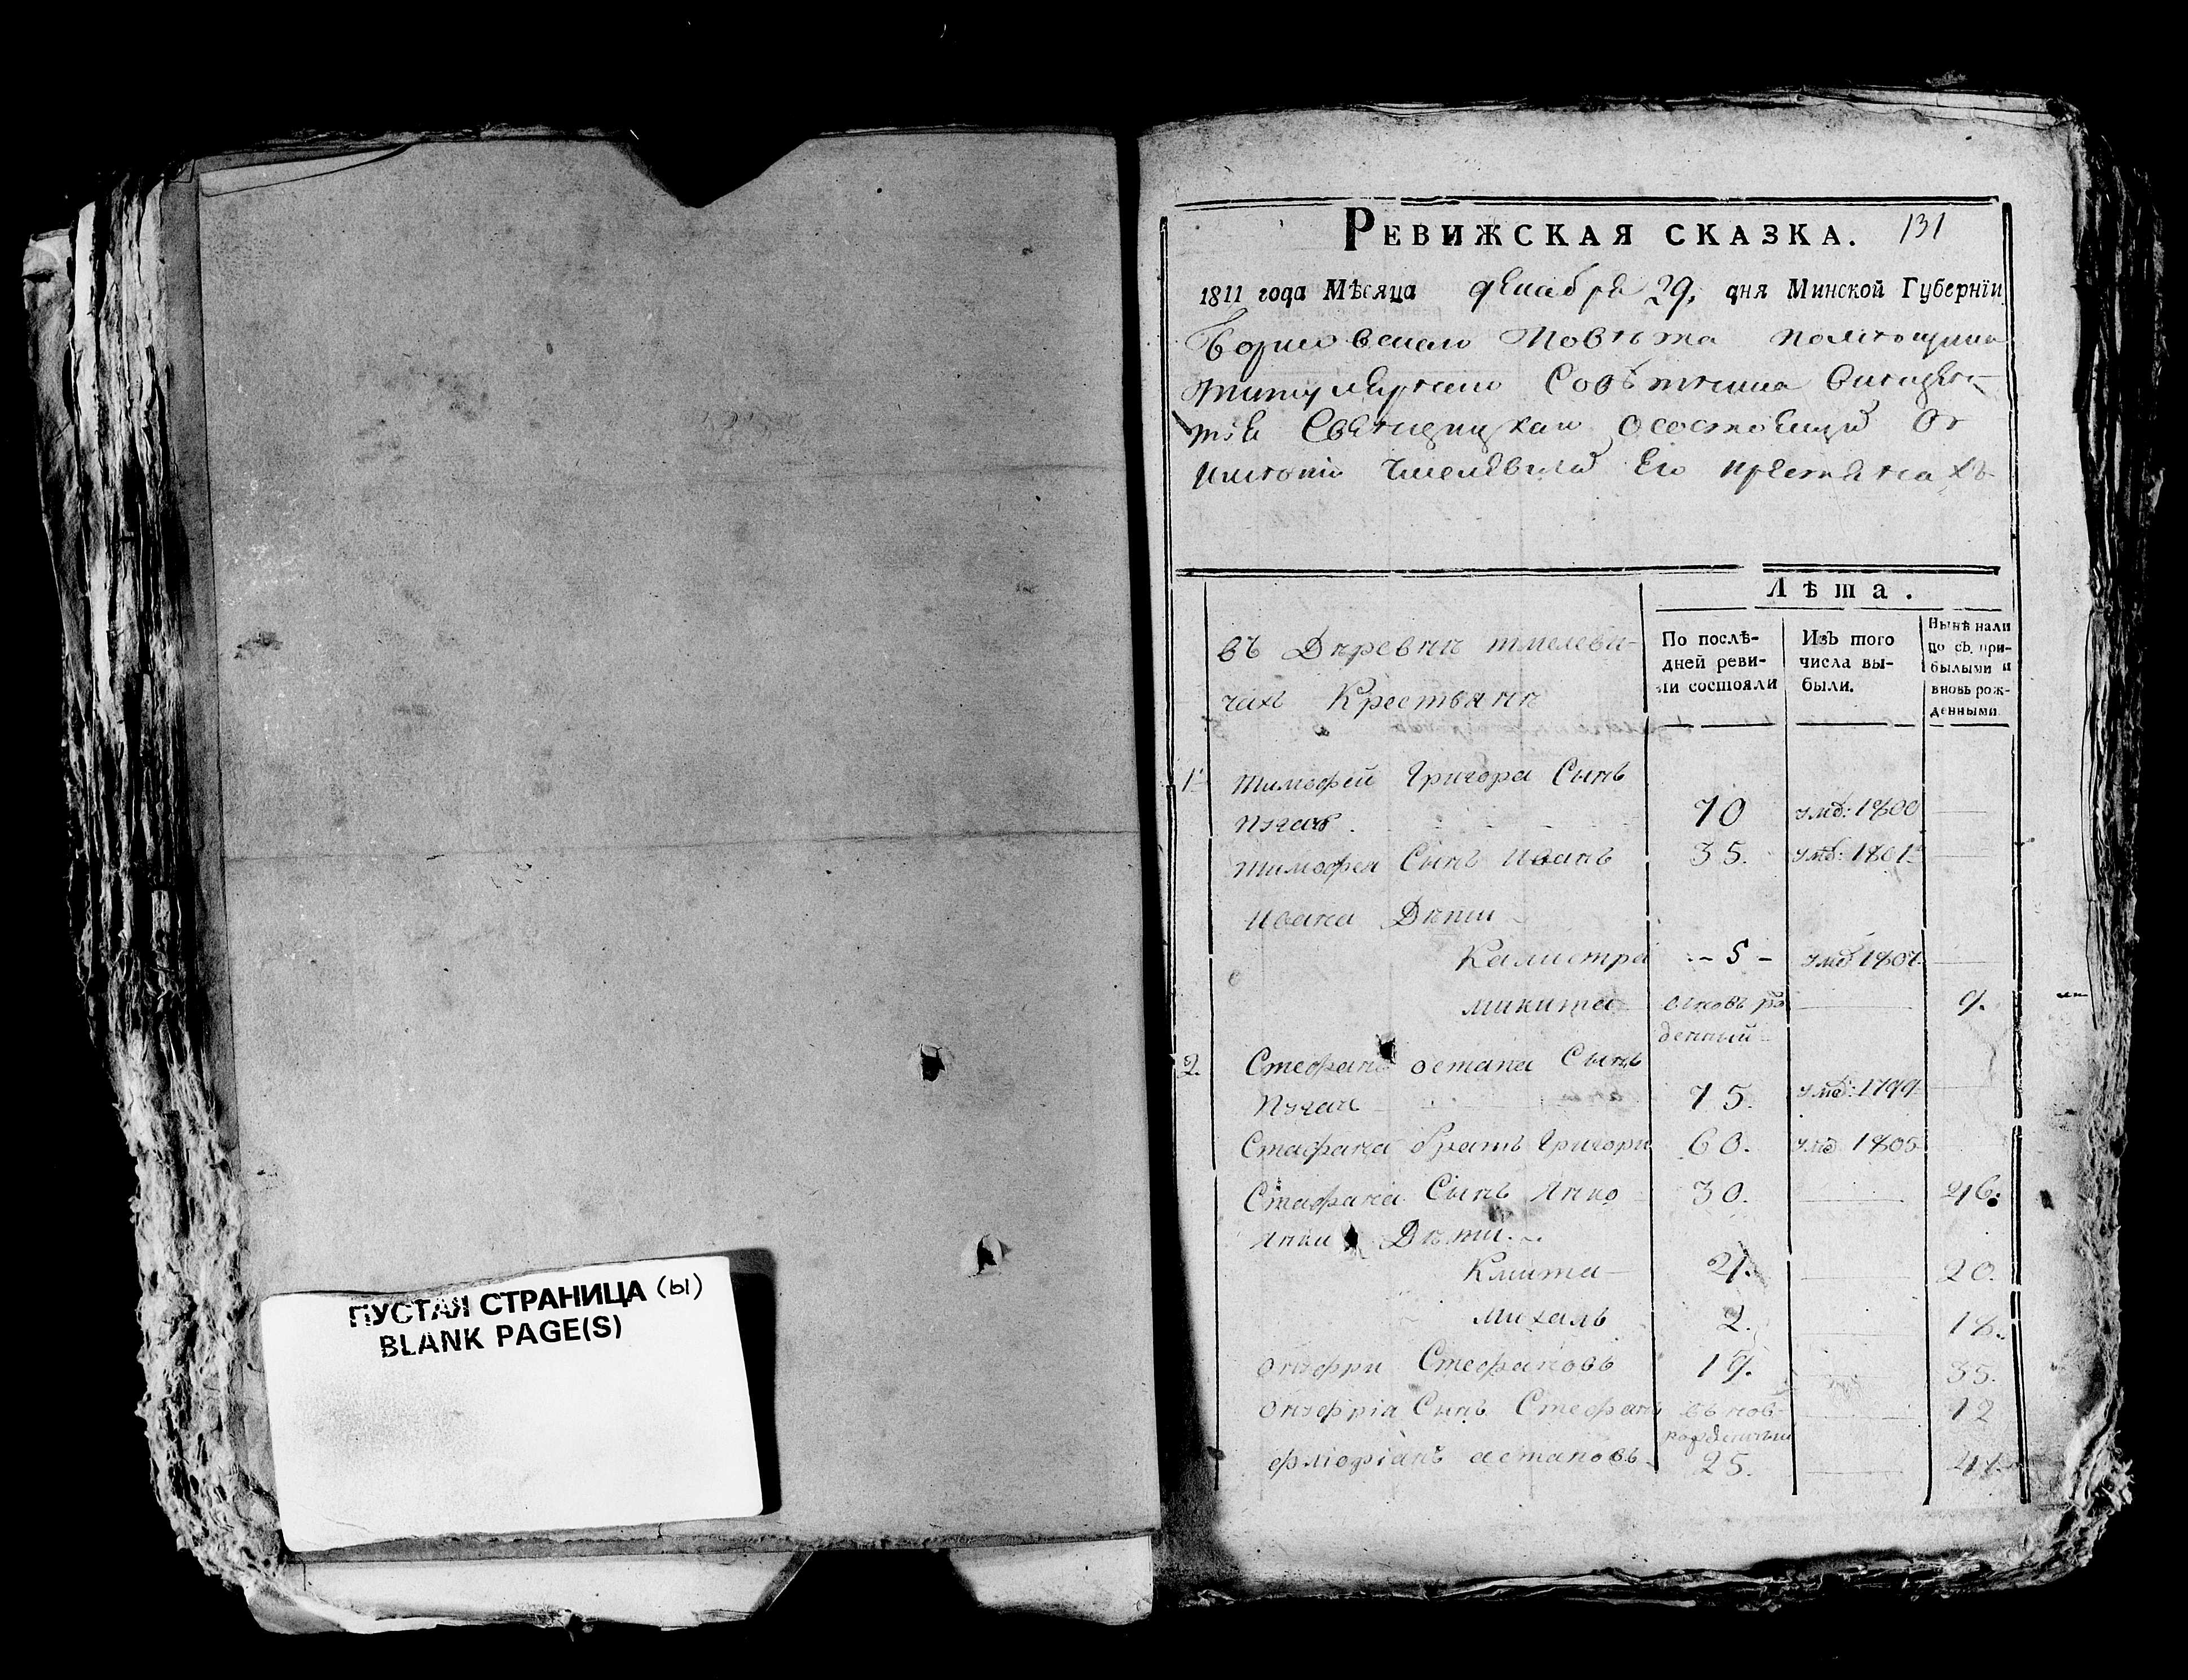 ПУСТАЯ СТРАНИЦА (ы)
BLANK PAGE(S)
РЕВИЖСКАЯ СКАЗКА. 131
1811 года Мѣсяца декабря 29, дня Минской Губерніи
Борисовскаго Повѣта помѣщика
титулярнаго Совѣтника
о состоящий
имѣнии Его крестянахъ
Лѣта.
въ Дѣревнѣ тмелеви-
чахъ Крестянѣ
По послѣ-
дней реви-
зіи состояли
Изъ того
числа вы-
были.
Нынѣ нали
цо съ при-
былыми и
вновь рож-
денными
1 Тимофей Григора Сынъ
Пугачъ 70 умб: 1800
Тимофея Сынъ Иванъ 35. умб: 1801
Ивана Дѣти
Калистра - 5 - умб 1807
Микита вновь ро 9.
денный
2. Стефанъ остапа Сынъ
Пугачъ 75. умб: 1799
Стефана братъ Григори 60. умб 1805
Стефана Сынъ Янко 30. 46.
Янки Дѣти.
Кмита 20.
Михаль 2. 18.
Онуфри Стефановъ 19. 35.
Онуфрія Сынъ Стефанъ вьнов 12
рожденный
Флиоріанъ астаповъ 25. 41.